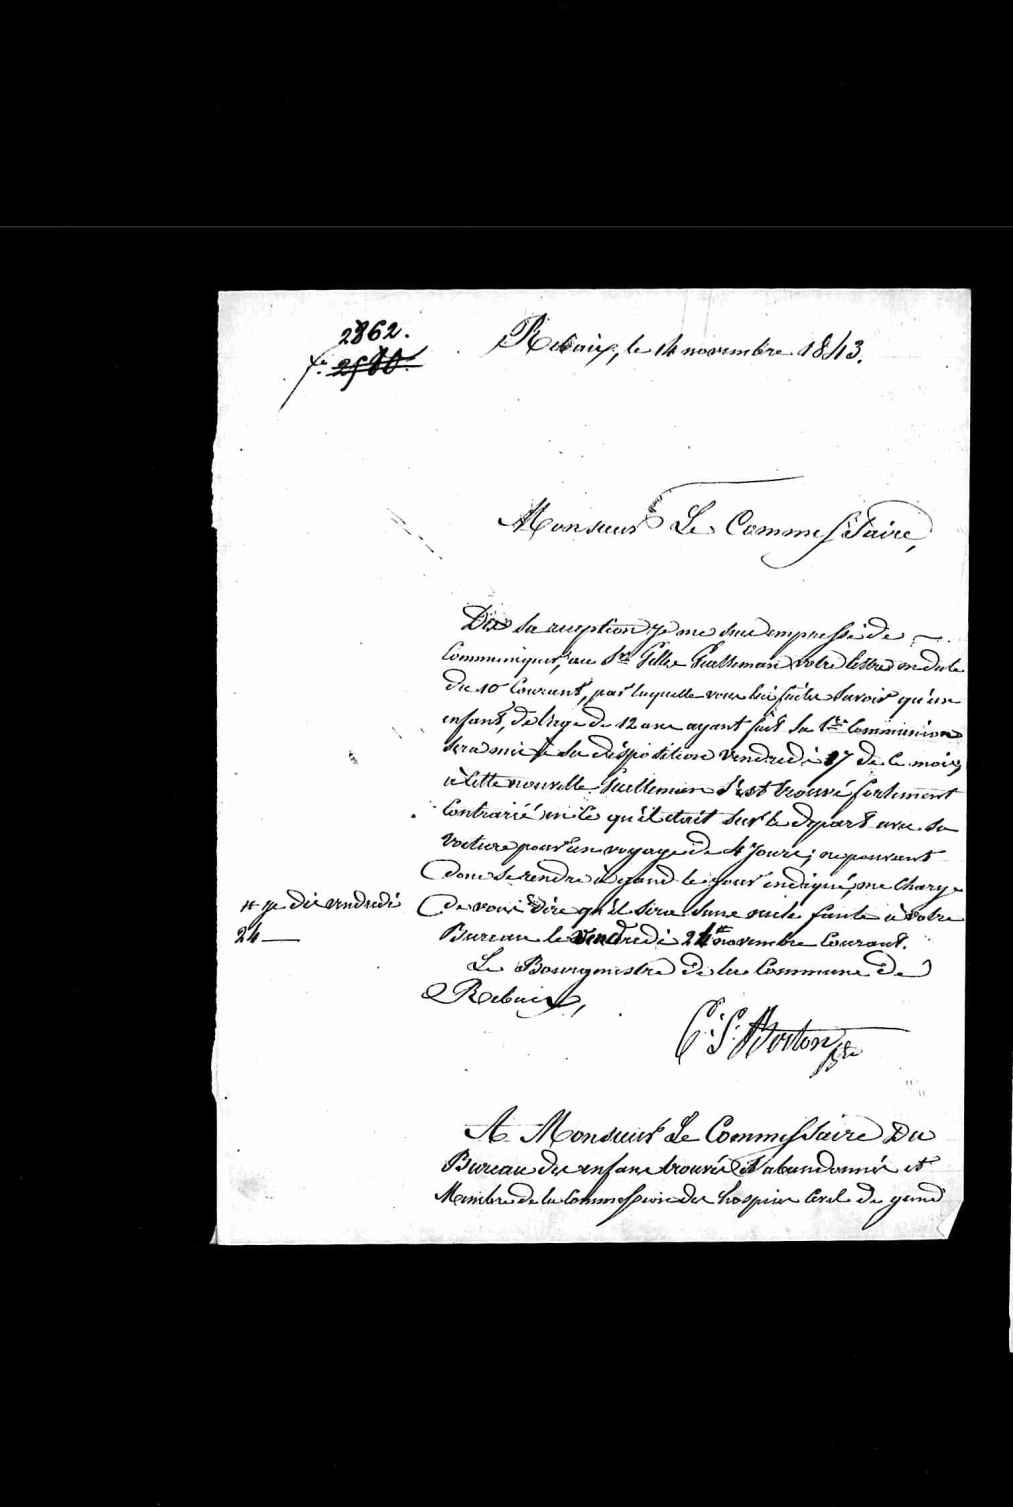 2862.
f. 2580.
Rebaix, le 14 novembre 1843.
Monsieur Le Commissaire,
Dès sa reception je me suis empressé de
Communiquer, au Sr Gille Guelleman votre lettre en date
du 10 Courant, par laquelle vous lui faites Savoir qu'un
enfant, de l'age de 12 ans ayant fait sa 1re Communion
sera mis à sa disposition vendredi 17 de ce mois,
à Cette nouvelle Guelleman s'est trouvé fortement
Contrarié en ce qu'il etait sur le depart avec sa
voiture pour un voyage de 4 Jours; ne pouvant
donc se rendre à gand le jour indiqué, me charge
de vous dire qu'il sera sans nule faute à votre
Bureau le vendredi 24 novembre Courant.
dit vendredi
24 —
Le Bourgmestre de la Commune de
Rebaix,
A Monsieur Le Commissaire Du
Bureau des enfans trouvés et abandonnés et
Membre de la Commission des hospices Civil de gand